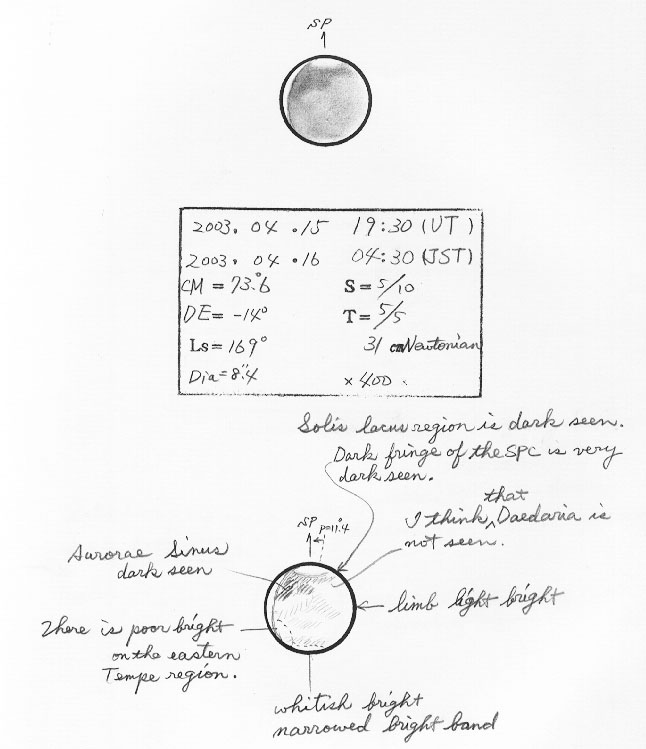 SP
2003. 04 .15 19:30 (UT)
2003. 04 .16 04:30 (JST)
CM = 73.°6 S = 5/10
DE = -14° T = 5/5
Ls = 169° 31 cm Newtonian
Dia = 8."4 × 400
Solis lacus region is dark seen.
Dark fringe of the SPC is very
dark seen.
that
I think, Daedaria is
not seen.
SP P=11.°4
Aurorae Sinus
dark seen
limb light bright
There is poor bright
on the eastern
Tempe region.
whitish bright
narrowed bright band